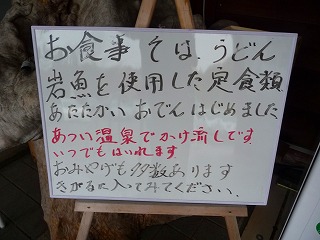 お食事 そば、うどん
岩魚を使用した定食類
あたたかい おでん はじめました
あつい温泉でかけ流しです
いつでもはいれます
おみやげも多数あります
きがるに入ってみてください。